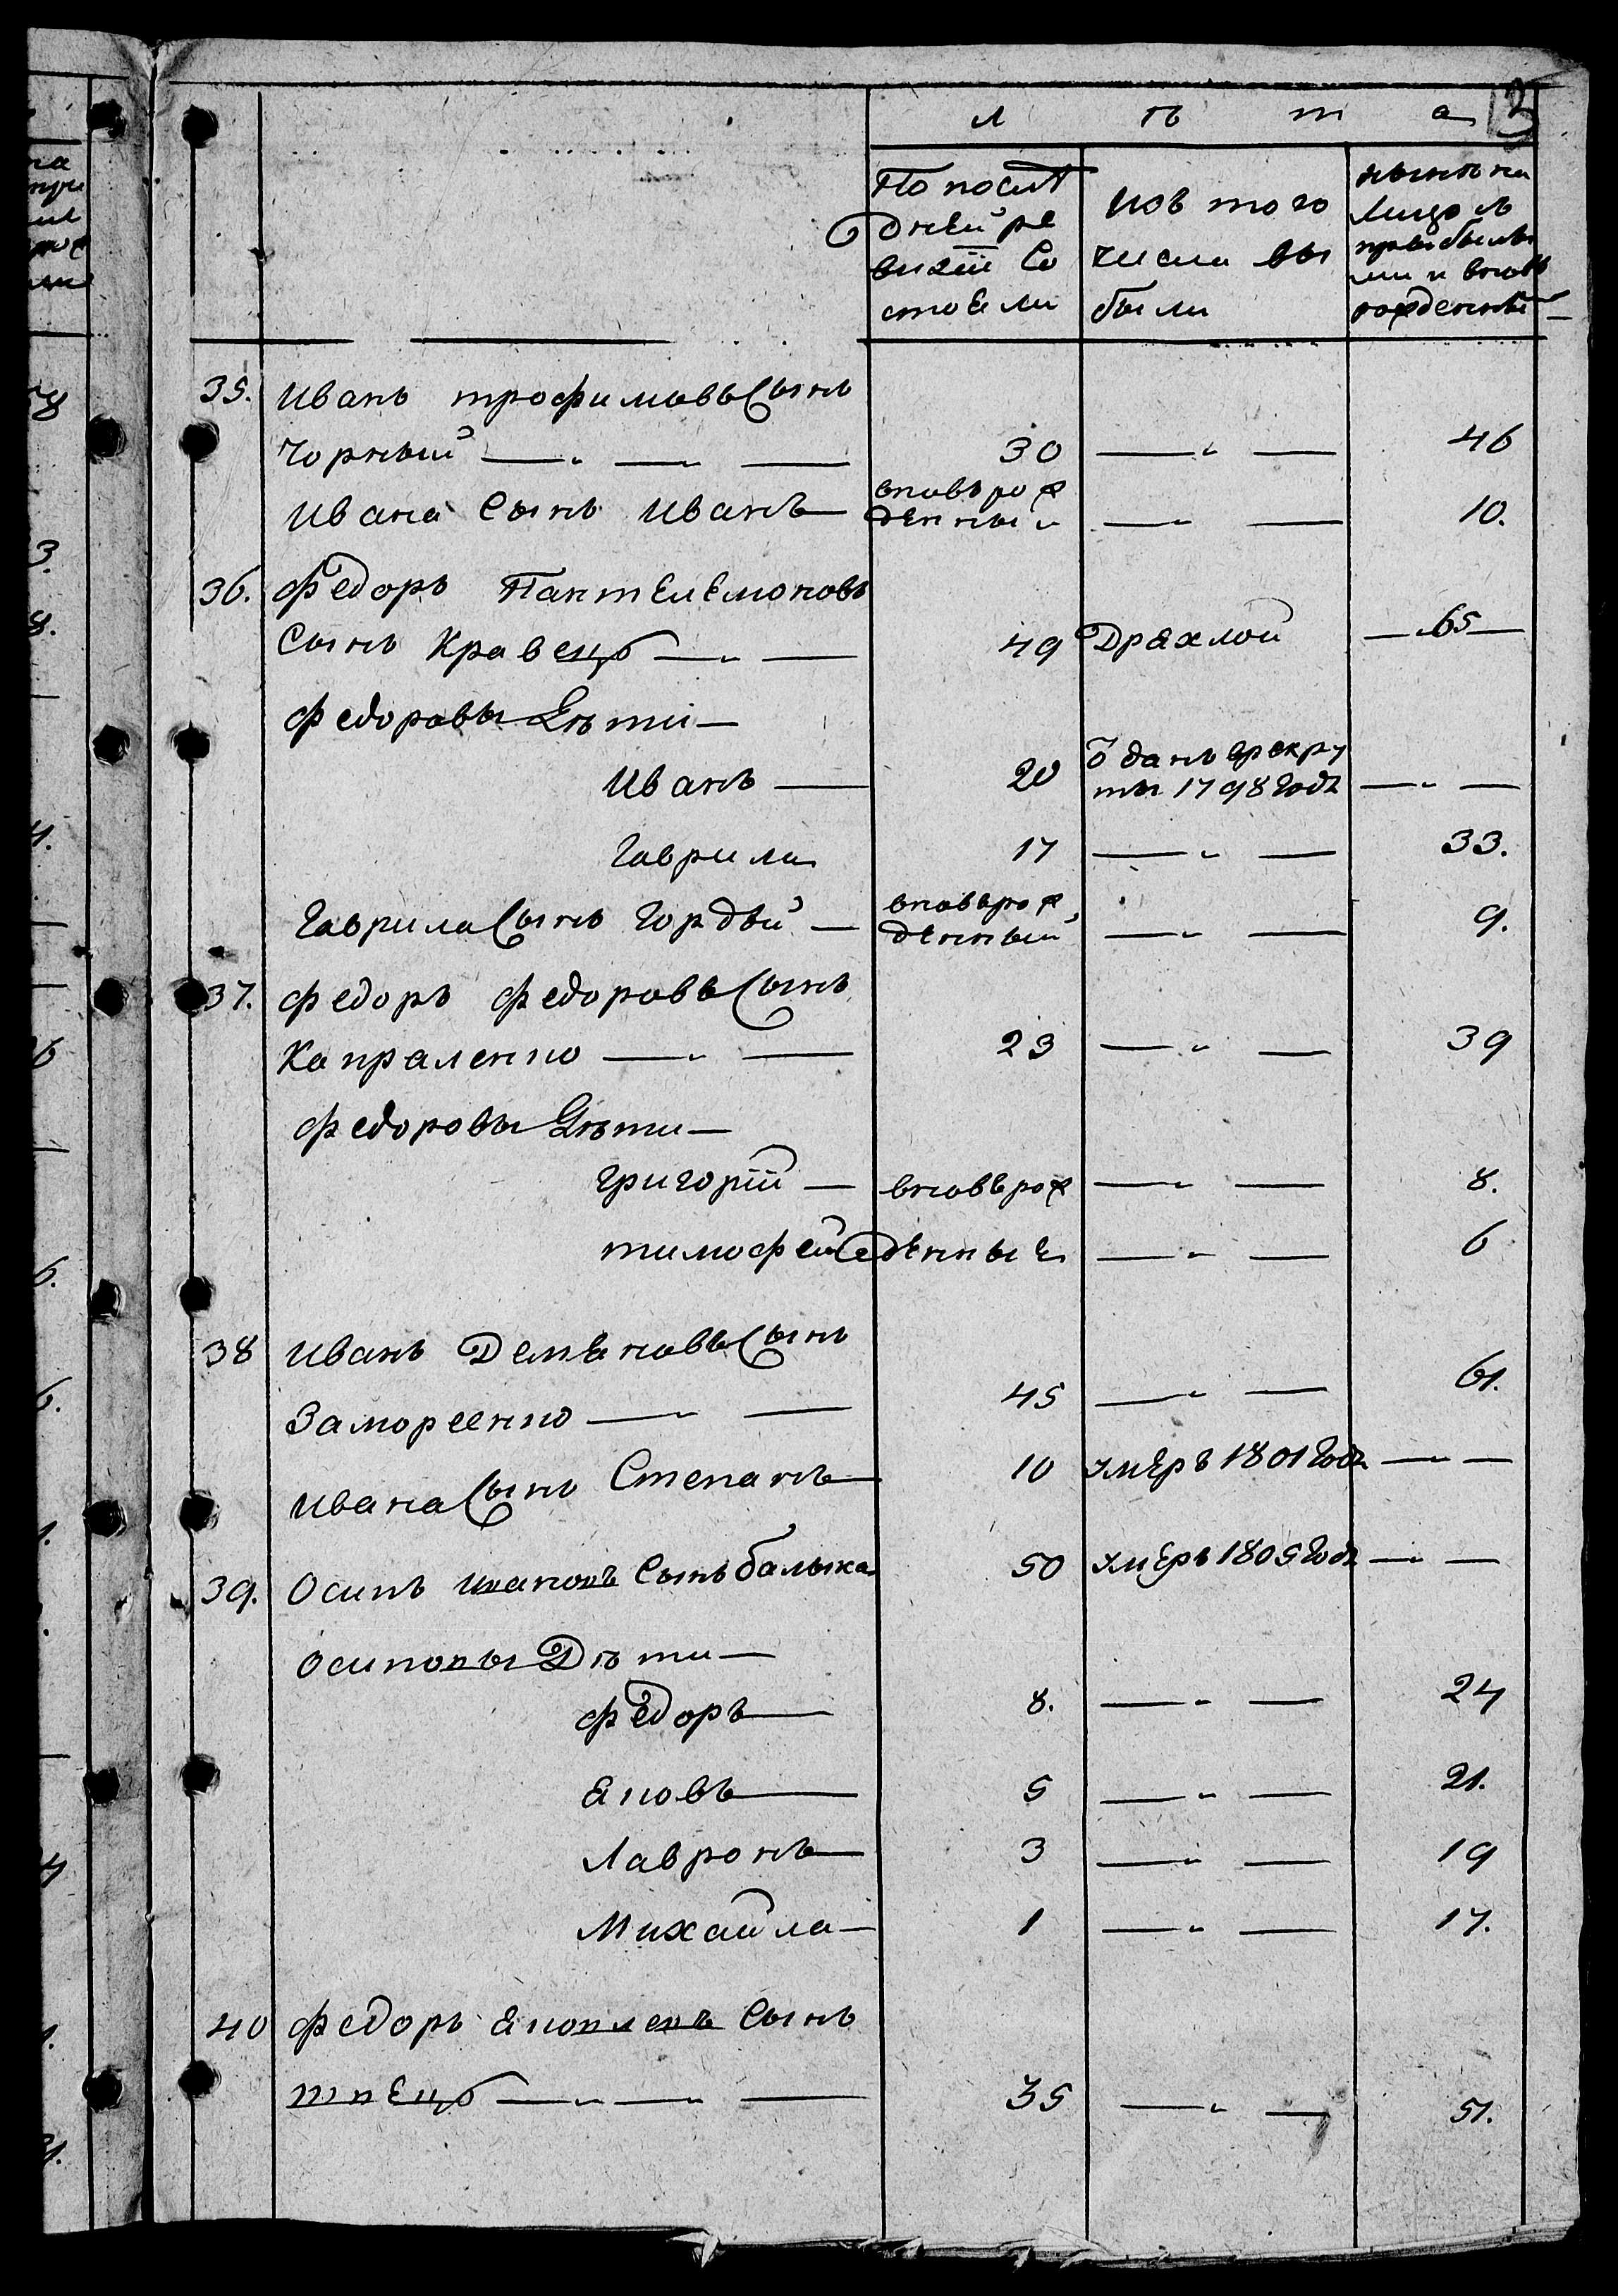 лѣта 13
По послѣ
дней ре
визіи Со
стояли
изъ того
числа вы
были
нынѣ на
Лицо съ
прибылы
ми и вновь
рожденны
35. Иванъ трофимовъ Сынъ
Чорный — „ — — 30 — „ — 46
Ивана Сынъ Иванъ — вновь рож
денный — „ — 10.
36. Федоръ Пантелемоновъ
Сынъ Кравецъ — „ — 49 Дряхлой — 65 —
Федоровы Дѣти —
Иванъ — 20 ѿданъ врекру
ты 1798 годꙋ — „ —
Гаврила 17 — „ — 33.
Гаврила Сынъ Гордѣй — вновь рож
денный — „ — 9.
37. Федоръ Федоровъ Сынъ
Капраленко — „ — 23 — „ — 39
Федоровы Дѣти —
Григорій — вновь рож — „ — 8.
тимофей денные — „ — 6
38 Иванъ Демяновъ Сынъ
Замореенко — „ — 45 — „ — 61.
Ивана Сынъ Степанъ — 10 умеръ 1801 годꙋ — „ —
39. Осипъ Ивановъ Сынъ балыка 50 умеръ 1805 годꙋ — „ —
Осиповы Дѣти —
Федоръ — 8. — „ — 24
Яковъ — 5 — „ — 21.
Лавронъ — 3 — „ — 19
Михайла — 1 — „ — 17.
40 Федоръ Яковлевъ Сынъ
швецъ — „ — „ — 35 — „ — 51.